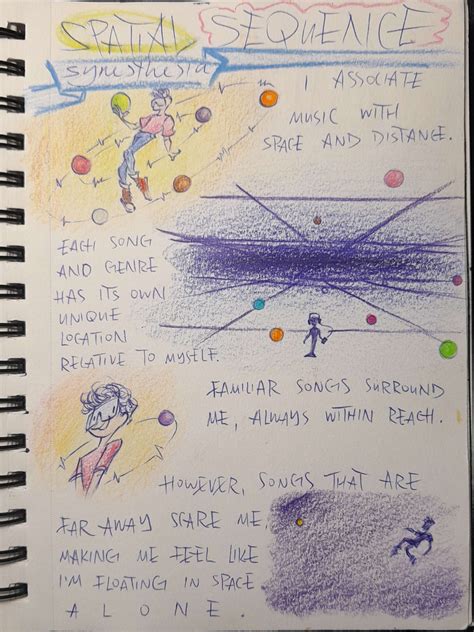 SPATIAL SEQUENCE
SYNESTHESIA
I ASSOCIATE
MUSIC WITH
SPACE AND DISTANCE.
EACH SONG
AND GENRE
HAS ITS OWN
UNIQUE
LOCATION
RELATIVE TO MYSELF.
FAMILIAR SONGS SURROUND
ME, ALWAYS WITHIN REACH.
HOWEVER, SONGS THAT ARE
FAR AWAY SCARE ME,
MAKING ME FEEL LIKE
I'M FLOATING IN SPACE
ALONE.